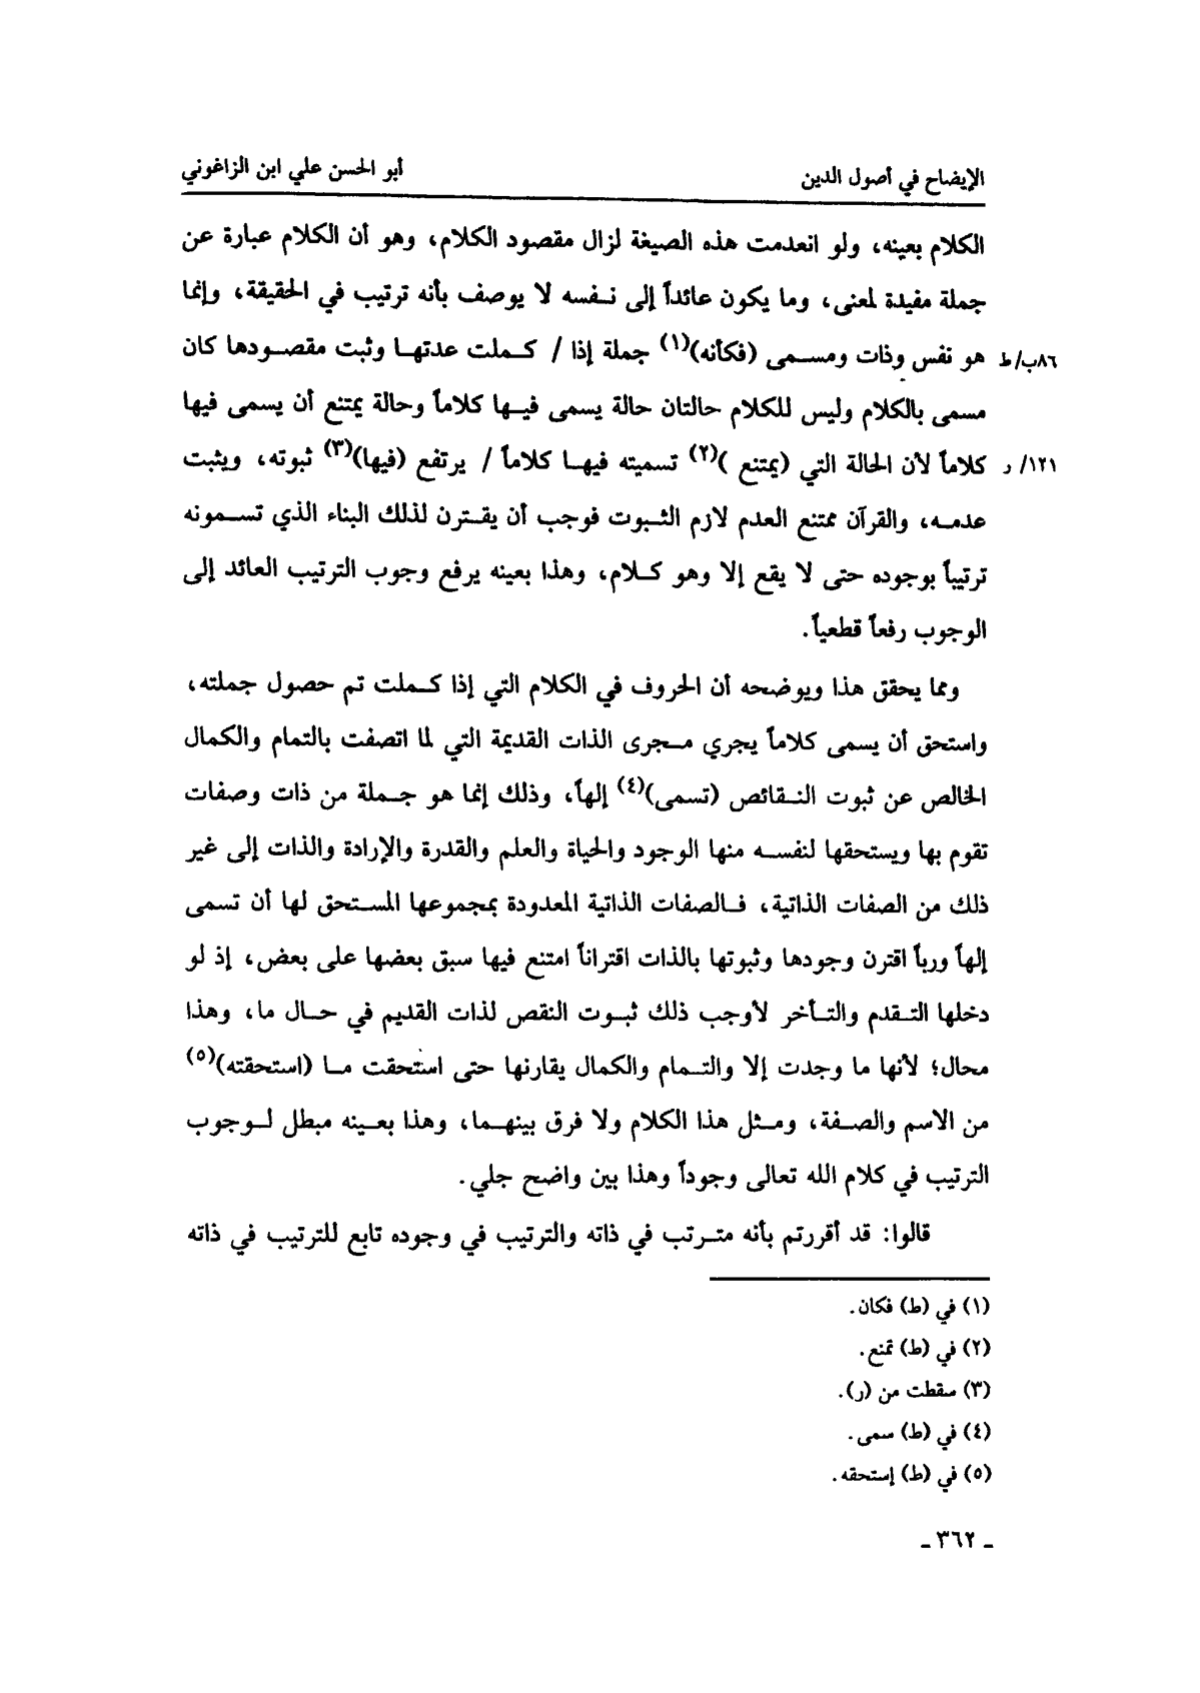 الإيضاح في أصول الدين
أبو الحسن علي ابن الزاغوني
الكلام بعينه، ولو انعدمت هذه الصيغة لزال مقصود الكلام، وهو أن الكلام عبارة عن
جملة مفيدة لمعنى، وما يكون عائداً إلى نفسه لا يوصف بأنه ترتيب في الحقيقة، وإنما
٨٦ب/ط هو نفس وذات ومسمى (فكأنه)(١) جملة إذا / كملت عدتها وثبت مقصودها كان
مسمى بالكلام وليس للكلام حالتان حالة يسمى فيها كلاماً وحالة يمتنع أن يسمى فيها
١٢١/ ر كلاماً لأن الحالة التي (يمتنع )(٢) تسميته فيها كلاماً / يرتفع (فيها)(٣) ثبوته، ويثبت
عدمه، والقرآن ممتنع العدم لازم الثبوت فوجب أن يقترن لذلك البناء الذي تسمونه
ترتيباً بوجوده حتى لا يقع إلا وهو كلام، وهذا بعينه يرفع وجوب الترتيب العائد إلى
الوجوب رفعاً قطعياً.
ومما يحقق هذا ويوضحه أن الحروف في الكلام التي إذا كملت تم حصول جملته،
واستحق أن يسمى كلاماً يجري مجرى الذات القديمة التي لما اتصفت بالتمام والكمال
الخالص عن ثبوت النقائص (تسمى)(٤) إلهاً، وذلك إنما هو جملة من ذات وصفات
تقوم بها ويستحقها لنفسه منها الوجود والحياة والعلم والقدرة والإرادة والذات إلى غير
ذلك من الصفات الذاتية، فالصفات الذاتية المعدودة بمجموعها المستحق لها أن تسمى
إلهاً ورباً اقترن وجودها وثبوتها بالذات اقتراناً امتنع فيها سبق بعضها على بعض، إذ لو
دخلها التقدم والتأخر لأوجب ذلك ثبوت النقص لذات القديم في حال ما، وهذا
محال؛ لأنها ما وجدت إلا والتمام والكمال يقارنها حتى استحقت ما (استحقته)(٥)
من الاسم والصفة، ومثل هذا الكلام ولا فرق بينهما، وهذا بعينه مبطل لوجوب
الترتيب في كلام الله تعالى وجوداً وهذا بين واضح جلي.
قالوا: قد أقررتم بأنه مترتب في ذاته والترتيب في وجوده تابع للترتيب في ذاته
(١) في (ط) فكان.
(٢) في (ط) تمنع.
(٣) سقطت من (ر).
(٤) في (ط) سمى.
(٥) في (ط) إستحقه.
ـ ٣٦٢ ـ